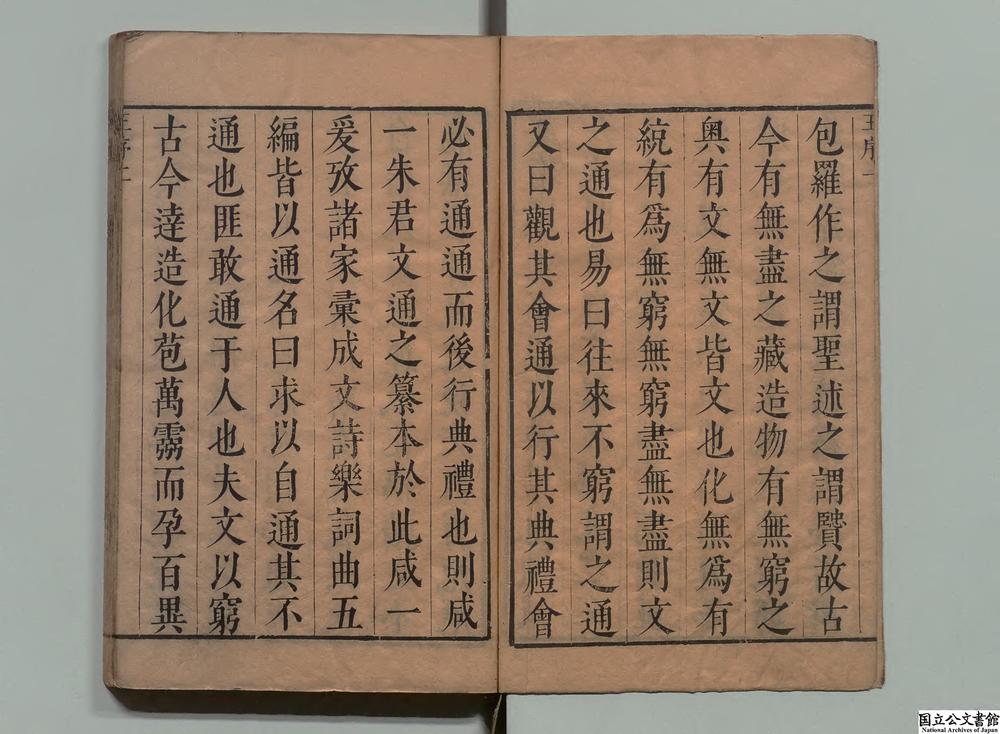 包羅作之謂聖述之謂賢故古
今有無盡之藏造物有無窮之
奥有文無文皆文也化無爲有
統有爲無窮無窮盡無盡則文
之通也易曰往來不窮謂之通
又曰觀其會通以行其典禮會
必有通通而後行典禮也則咸
一朱君文通之纂本於此咸一
爰攷諸家彙成文詩樂詞曲五
編皆以通名曰求以自通其不
通也匪敢通于人也夫文以窮
古今達造化苞萬靈而孕百異
国立公文書館
National Archives of Japan